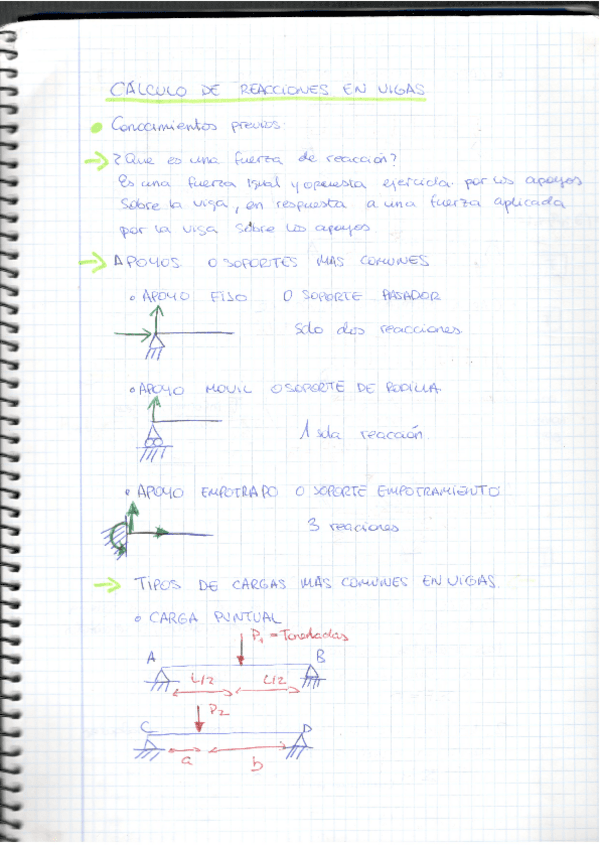 CÁLCULO DE REACCIONES EN VIGAS
Conocimientos previos.
¿Que es una fuerza de reacción?
Es una fuerza igual y opuesta ejercida por los apoyos
sobre la viga, en respuesta a una fuerza aplicada
por la viga sobre los apoyos
APOYOS O SOPORTES MAS COMUNES
APOYO FIJO O SOPORTE PASADOR
solo dos reacciones.
APOYO MOVIL O SOPORTE DE RODILLA
1 sola reacción.
APOYO EMPOTRADO O SOPORTE EMPOTRAMIENTO
3 reaciones
TIPOS DE CARGAS MAS COMUNES EN VIGAS.
CARGA PUNTUAL
P1 = Toneladas
A B
L/2 L/2
P2
C D
a b